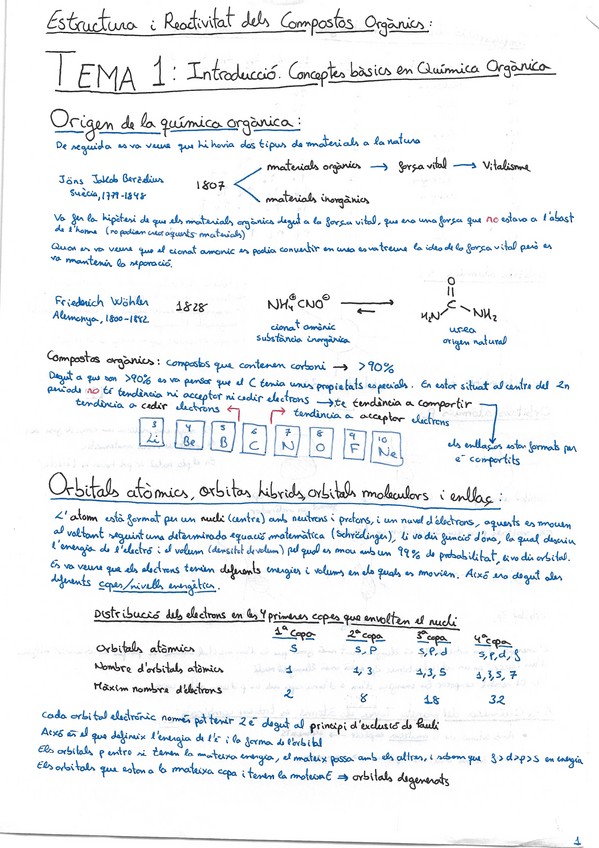 Estructura i Reactivitat dels Compostos Orgànics:
TEMA 1: Introducció. Conceptes bàsics en Química Orgànica
Origen de la química orgànica:
De seguida es va veure que hi havia dos tipus de materials a la natura
materials orgànics → força vital → Vitalisme
Jöns Jakob Berzelius
Suècia, 1779-1848
1807
materials inorgànics
Va fer la hipòtesi de que els materials orgànics degut a la força vital, que era una força que no estava a l'abast
de l'home (no podien crear aquests materials)
Quan es va veure que el cianat amònic es podia convertir en urea es va treure la idea de la força vital però es
va mantenir la separació.
Friederich Wöhler
Alemanya, 1800-1882
1828
NH₄⊕ CNO⊖
cianat amònic
substància inorgànica
O
H₂N C NH₂
urea
origen natural
Compostos orgànics: compostos que contenen carboni → >90%
Degut a que son >90% es va pensar que el C tenia unes propietats especials. En estar situat al centre del 2n
període no té tendència ni acceptar ni cedir electrons → té tendència a compartir
tendència a cedir electrons
tendència a acceptar electrons
3 Li 4 Be 5 B 6 C 7 N 8 O 9 F 10 Ne
els enllaços estan formats per
e⁻ compartits
Orbitals atòmics, orbitas híbrids, orbitals moleculars i enllaç:
L'atom està format per un nucli (centre) amb neutrons i protons, i un nuvol d'electrons, aquests es mouen
al voltant seguint una determinada equació matemàtica (Schrödinger), li va dir funció d'ona, la qual descriu
l'energia de l'electró i el volum (densitat de volum) pel qual es mou amb un 99% de probabilitat, li va dir orbital.
Es va veure que els electrons tenien diferents energies i volums en els quals es movien. Això era degut a les
diferents capes/nivells energètics.
Distribució dels electrons en les 4 primeres capes que envolten el nucli
1ª capa 2ª capa 3ª capa 4ª capa
Orbitals atòmics s s, p s, p, d s, p, d, f
Nombre d'orbitals atòmics 1 1, 3 1, 3, 5 1, 3, 5, 7
Màxim nombre d'electrons 2 8 18 32
Cada orbital electrònic només pot tenir 2 e⁻ degut al principi d'exclusió de Pauli
Això és el que defineix l'energia de l'e⁻ i la forma de l'orbital
Els orbitals p entre si tenen la mateixa energia, el mateix passa amb els altres, i sabem que f>d>p>s en energia
Els orbitals que estan a la mateixa capa i tenen la mateixa E ⇒ orbitals degenerats
1